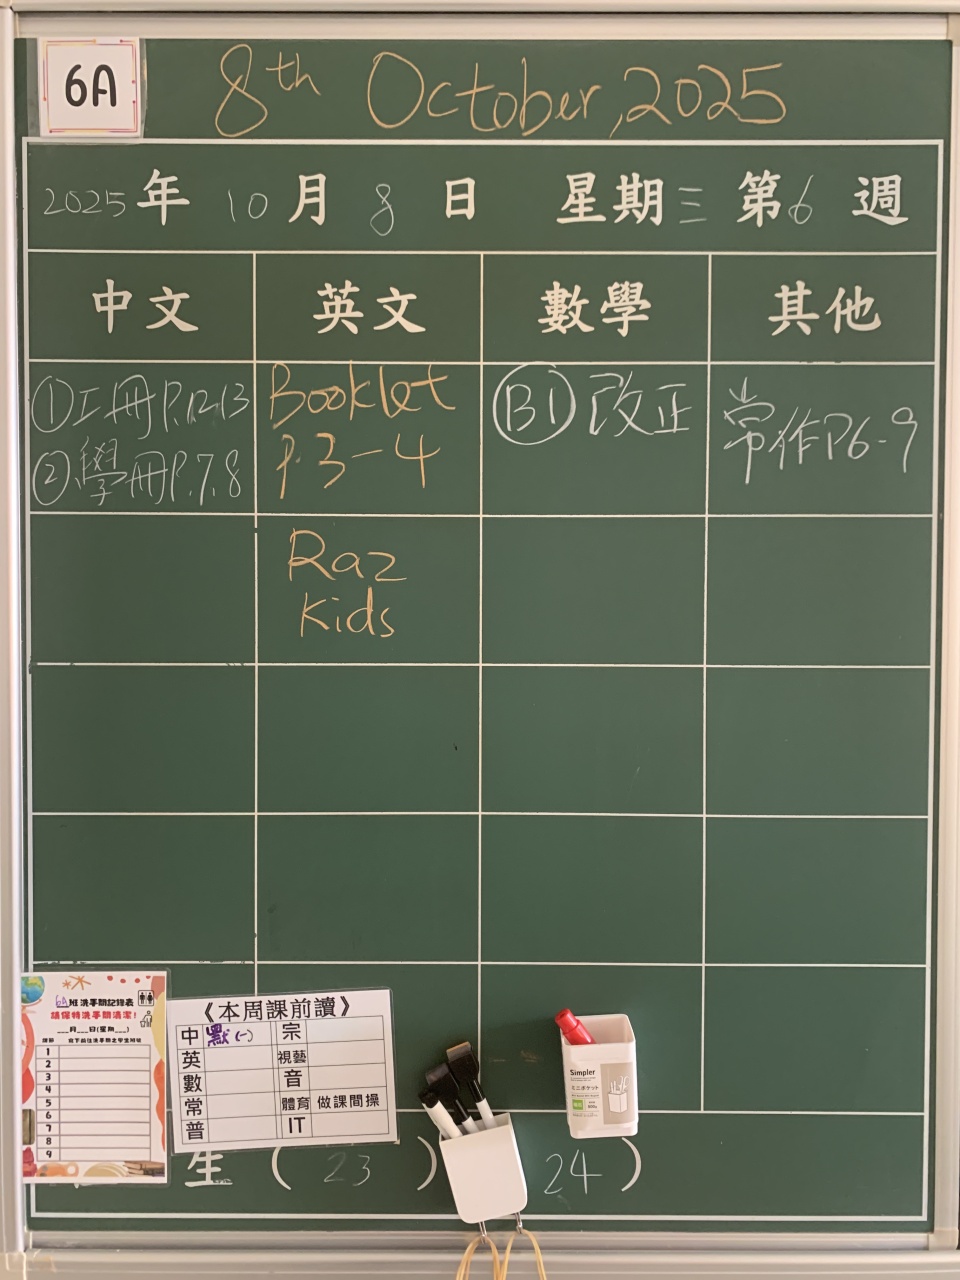 6A
8th October, 2025
2025年 10月 8日 星期三 第6週
中文 英文 數學 其他
①工冊P.12-13
②學冊P.7.8
Booklet
P.3-4
B1 改正
常作P6-9
Raz
Kids
6A班洗手間記錄表
請保持洗手間清潔!
___月___日(星期___)
1
2
3
4
5
6
7
8
9
《本周課前讀》
中 默(一) 宗
英 視藝
數 音
常 體育 做課間操
普 IT
Simpler
ミニポケット
生 ( 23 ) 24 )